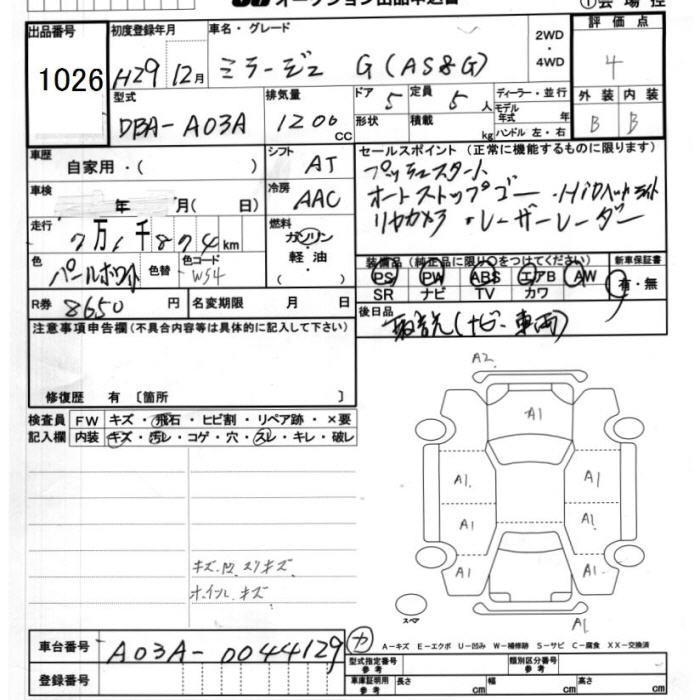 オークション出品申込書 ①会場控
出品番号 初度登録年月 車名・グレード 2WD・4WD 評価点
1026 H29 12月 ミラージュ G(AS&G) 4
型式 排気量 ドア 定員 ディーラー・並行 外装 内装
DBA-A03A 1200 cc 5 5人 モデル年式 年 B B
形状 積載 kg ハンドル 左・右
車歴 シフト セールスポイント(正常に機能するものに限ります)
自家用・( ) AT プッシュスタート
車検 年 月( 日) 冷房 AAC オートストップゴー・HIDヘッドライト
走行 7万1千874km 燃料 リヤカメラ・レーザーレーダー
ガソリン・軽油・( )
色 色替 色コード 装備品(純正品に限り○をつけてください) 新車保証書
パールホワイト W54 PS PW ABS エアB AW 有・無
SR ナビ TV カワ
R券 8650円 名変期限 月 日 後日品
注意事項申告欄(不具合内容等は具体的に記入して下さい) 取説(ナビ・車両)
修復歴 有 〔箇所 〕
検査員 FW キズ・飛石・ヒビ割・リペア跡・×要
記入欄 内装 キズ・汚レ・コゲ・穴・スレ・キレ・破レ
A2
A1
A1 A1
A1 A1
A1 A1
A1
スペア
キズ・凹 スリキズ
ホイル キズ
車台番号 A03A-0044129 カ
A-キズ E-エクボ U-凹み W-補修跡 S-サビ C-腐食 XX-交換済
登録番号 型式指定番号 参考 類別区分番号 参考
車庫証明用 参考 長さ cm 幅 cm 高さ cm